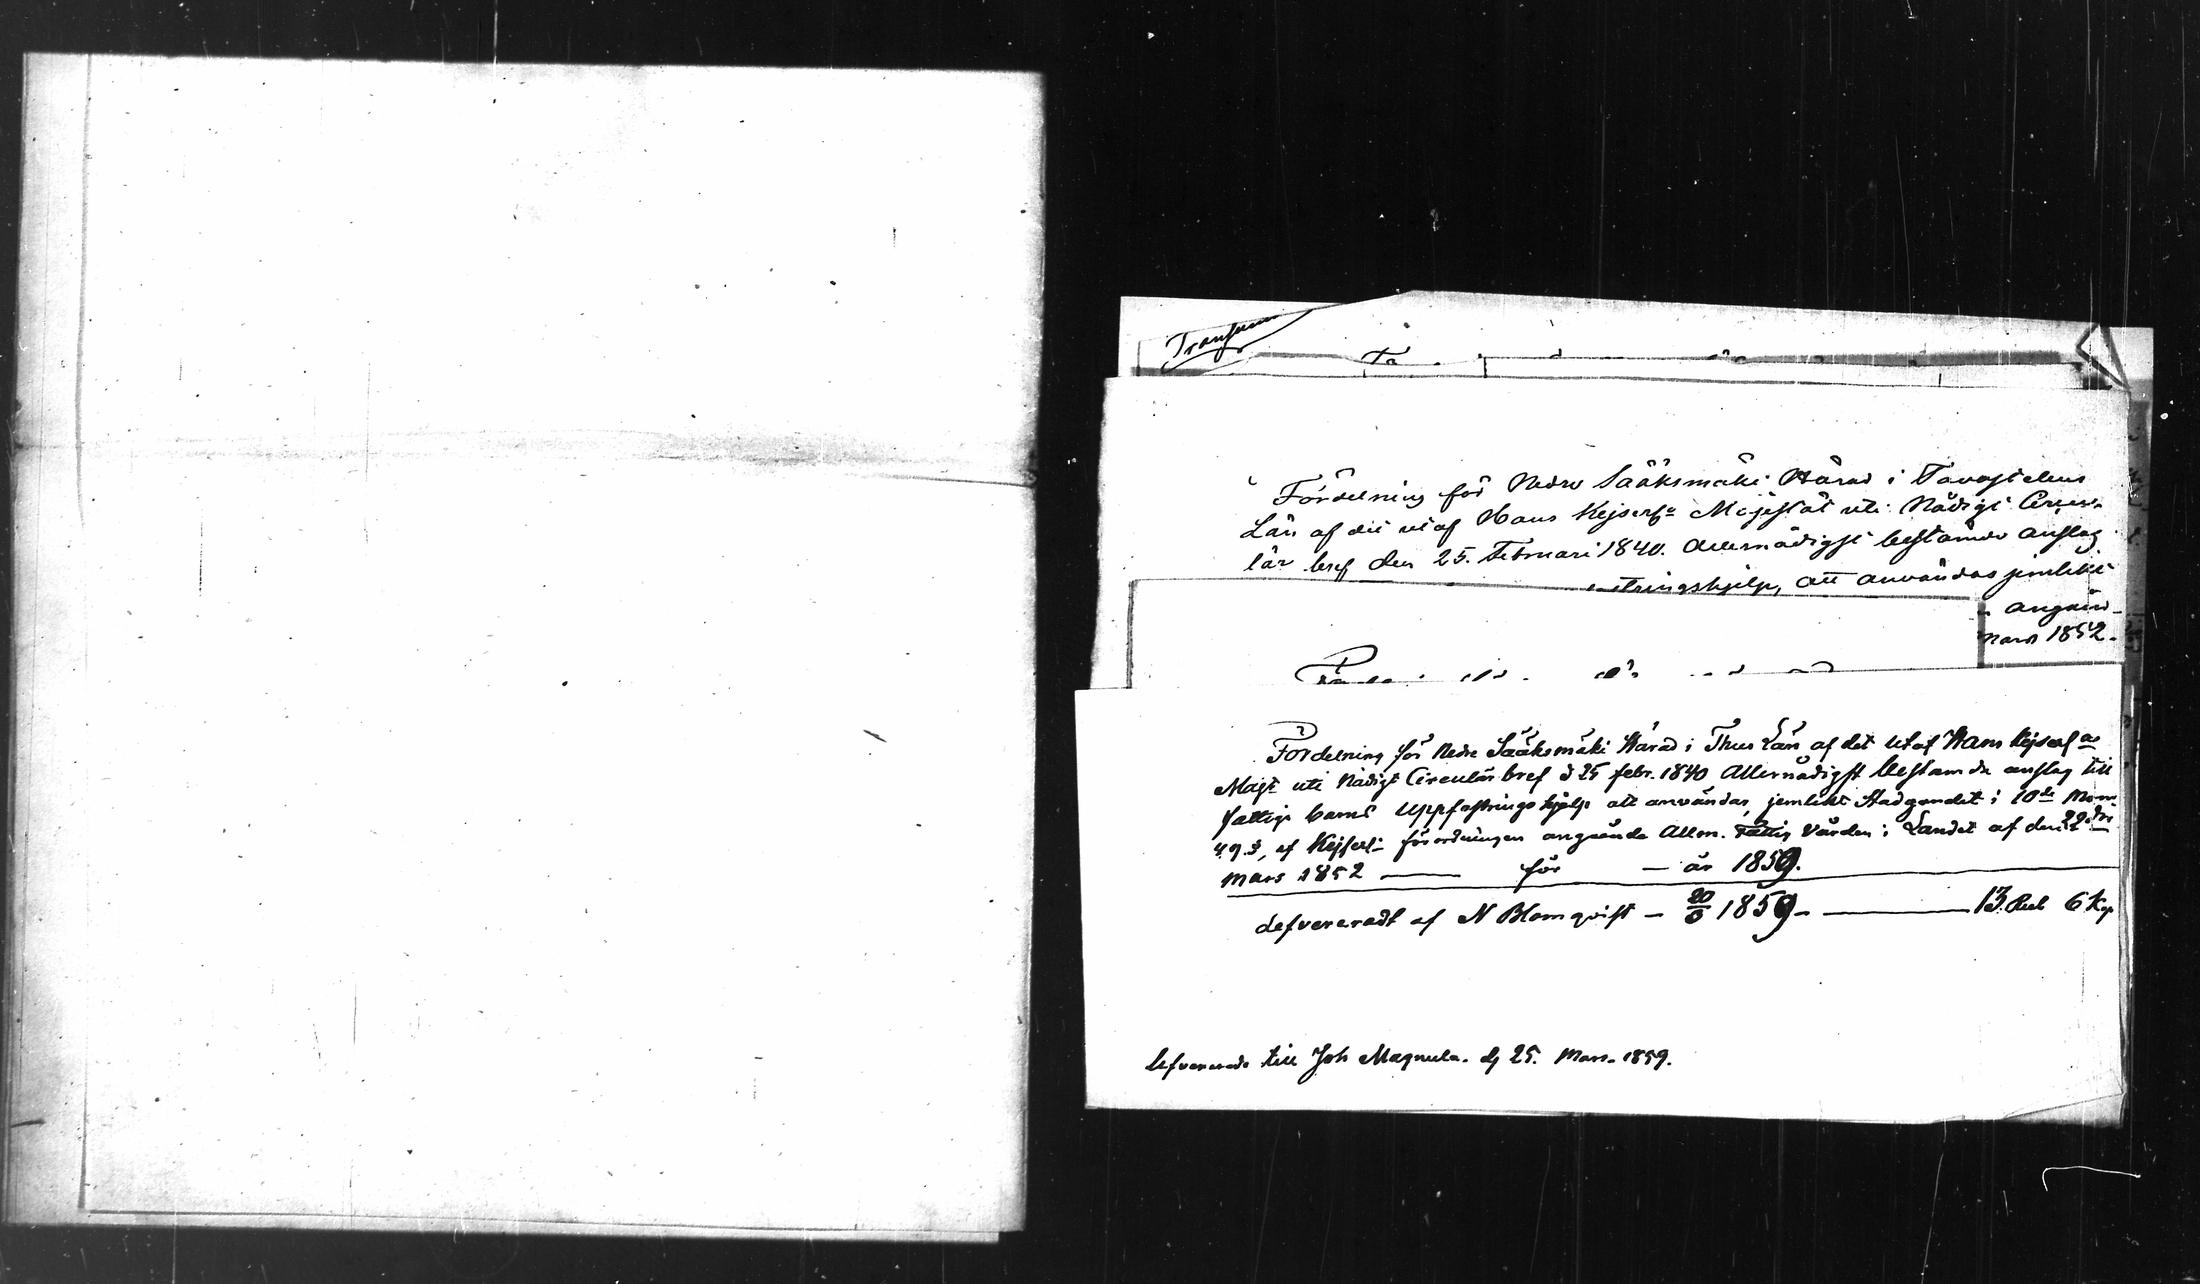 Fördelning för Nedre Sääksmäki Härad i Tavastehus
Län af det utaf Hans Kejserl:e Majestät uti Nådigt Circu-
lär bref den 25. Februari 1840. Allernådigst bestämde anslag
ringshjelp, att användas jemlikt
angåen-
mars 1852.
Fördelning för Nedre Sääksmäki Härad i Thus Län af det utaf Hans Kejserl:a
Majt uti Nådigt Circulär bref d 25 febr. 1840 Allernådigst bestämda anslag till
fattiga barns Uppfostrings hjelp att användas, jemlikt Stadgandet i 10de Mom.
4. g. §, af Kejserl: förordningen angående Allm. Fattig Vården i Landet af den 22dra
Mars 1852 — för — år 1859.
lefvereradt af N Blomqvist — 1859 — 13. Rub 6 Kp
lefvererade till Joh Magnula. d 25. Mars. 1859.